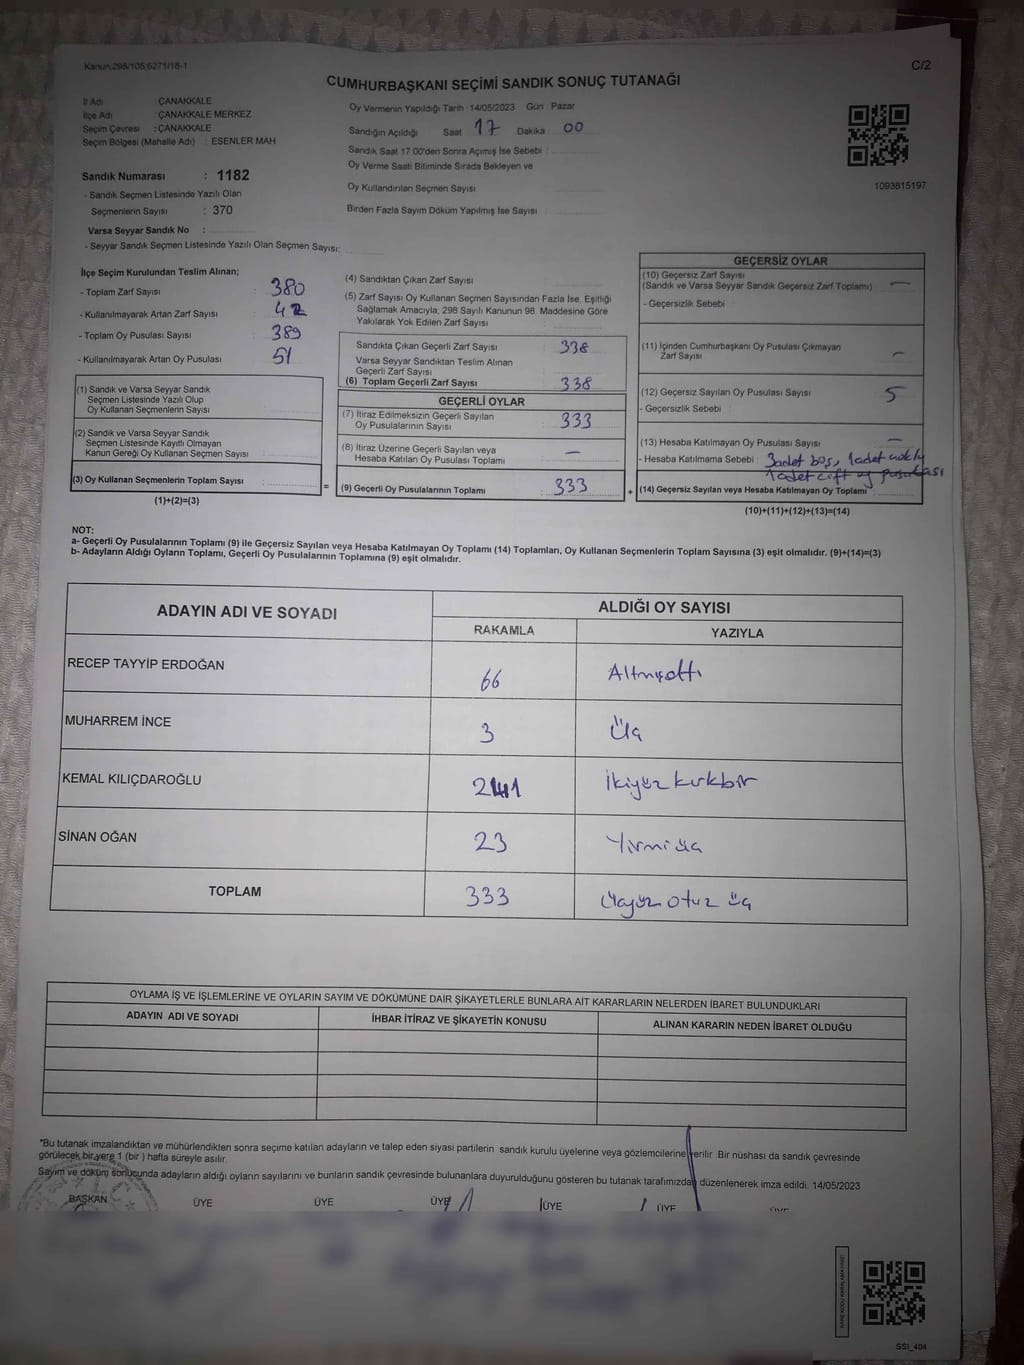 Kanun:298/105,6271/18-1
C/2
CUMHURBAŞKANI SEÇİMİ SANDIK SONUÇ TUTANAĞI
İl Adı ÇANAKKALE
İlçe Adı ÇANAKKALE MERKEZ
Seçim Çevresi : ÇANAKKALE
Seçim Bölgesi (Mahalle Adı) : ESENLER MAH
Sandık Numarası : 1182
- Sandık Seçmen Listesinde Yazılı Olan
Seçmenlerin Sayısı : 370
Varsa Seyyar Sandık No :
- Seyyar Sandık Seçmen Listesinde Yazılı Olan Seçmen Sayısı:
Oy Vermenin Yapıldığı Tarih 14/05/2023 Gün Pazar
Sandığın Açıldığı Saat 17 Dakika : 00
Sandık Saat 17:00'den Sonra Açımış İse Sebebi :
Oy Verme Saati Bitiminde Sırada Bekleyen ve
Oy Kullandırılan Seçmen Sayısı
Birden Fazla Sayım Döküm Yapılmış İse Sayısı :
1093815197
İlçe Seçim Kurulundan Teslim Alınan;
- Toplam Zarf Sayısı : 380
- Kullanılmayarak Artan Zarf Sayısı : 42
- Toplam Oy Pusulası Sayısı : 389
- Kullanılmayarak Artan Oy Pusulası : 51
(1) Sandık ve Varsa Seyyar Sandık
Seçmen Listesinde Yazılı Olup
Oy Kullanan Seçmenlerin Sayısı
(2) Sandık ve Varsa Seyyar Sandık
Seçmen Listesinde Kayıtlı Olmayan
Kanun Gereği Oy Kullanan Seçmen Sayısı
(3) Oy Kullanan Seçmenlerin Toplam Sayısı :
(1)+(2)=(3)
(4) Sandıktan Çıkan Zarf Sayısı
(5) Zarf Sayısı Oy Kullanan Seçmen Sayısından Fazla İse, Eşitliği
Sağlamak Amacıyla, 298 Sayılı Kanunun 98 Maddesine Göre
Yakılarak Yok Edilen Zarf Sayısı
Sandıkta Çıkan Geçerli Zarf Sayısı : 338
Varsa Seyyar Sandıktan Teslim Alınan
Geçerli Zarf Sayısı
(6) Toplam Geçerli Zarf Sayısı : 338
GEÇERLİ OYLAR
(7) İtiraz Edilmeksizin Geçerli Sayılan
Oy Pusulalarının Sayısı : 333
(8) İtiraz Üzerine Geçerli Sayılan veya
Hesaba Katılan Oy Pusulası Toplamı : —
= (9) Geçerli Oy Pusulalarının Toplamı : 333 +
GEÇERSİZ OYLAR
(10) Geçersiz Zarf Sayısı
(Sandık ve Varsa Seyyar Sandık Geçersiz Zarf Toplamı) : —
- Geçersizlik Sebebi
(11) İçinden Cumhurbaşkanı Oy Pusulası Çıkmayan
Zarf Sayısı : —
(12) Geçersiz Sayılan Oy Pusulası Sayısı : 5
- Geçersizlik Sebebi :
(13) Hesaba Katılmayan Oy Pusulası Sayısı : —
- Hesaba Katılmama Sebebi : 3 adet boş, 1 adet
1 adet çift oy pusulası
(14) Geçersiz Sayılan veya Hesaba Katılmayan Oy Toplamı :
(10)+(11)+(12)+(13)=(14)
NOT:
a- Geçerli Oy Pusulalarının Toplamı (9) ile Geçersiz Sayılan veya Hesaba Katılmayan Oy Toplamı (14) Toplamları, Oy Kullanan Seçmenlerin Toplam Sayısına (3) eşit olmalıdır. (9)+(14)=(3)
b- Adayların Aldığı Oyların Toplamı, Geçerli Oy Pusulalarının Toplamına (9) eşit olmalıdır.
ADAYIN ADI VE SOYADI ALDIĞI OY SAYISI
RAKAMLA YAZIYLA
RECEP TAYYİP ERDOĞAN 66 Altmışaltı
MUHARREM İNCE 3 Üç
KEMAL KILIÇDAROĞLU 241 İkiyüz kırkbir
SİNAN OĞAN 23 Yirmi üç
TOPLAM 333 Üçyüz otuz üç
OYLAMA İŞ VE İŞLEMLERİNE VE OYLARIN SAYIM VE DÖKÜMÜNE DAİR ŞİKAYETLERLE BUNLARA AİT KARARLARIN NELERDEN İBARET BULUNDUKLARI
ADAYIN ADI VE SOYADI İHBAR İTİRAZ VE ŞİKAYETİN KONUSU ALINAN KARARIN NEDEN İBARET OLDUĞU
"Bu tutanak imzalandıktan ve mühürlendikten sonra seçime katılan adayların ve talep eden siyasi partilerin sandık kurulu üyelerine veya gözlemcilerine verilir .Bir nüshası da sandık çevresinde
görülecek bir yere 1 (bir ) hafta süreyle asılır.
Sayım ve döküm sonucunda adayların aldığı oyların sayılarını ve bunların sandık çevresinde bulunanlara duyurulduğunu gösteren bu tutanak tarafımızdan düzenlenerek imza edildi. 14/05/2023
BAŞKAN ÜYE ÜYE ÜYE ÜYE ÜYE ÜYE
SSI_404